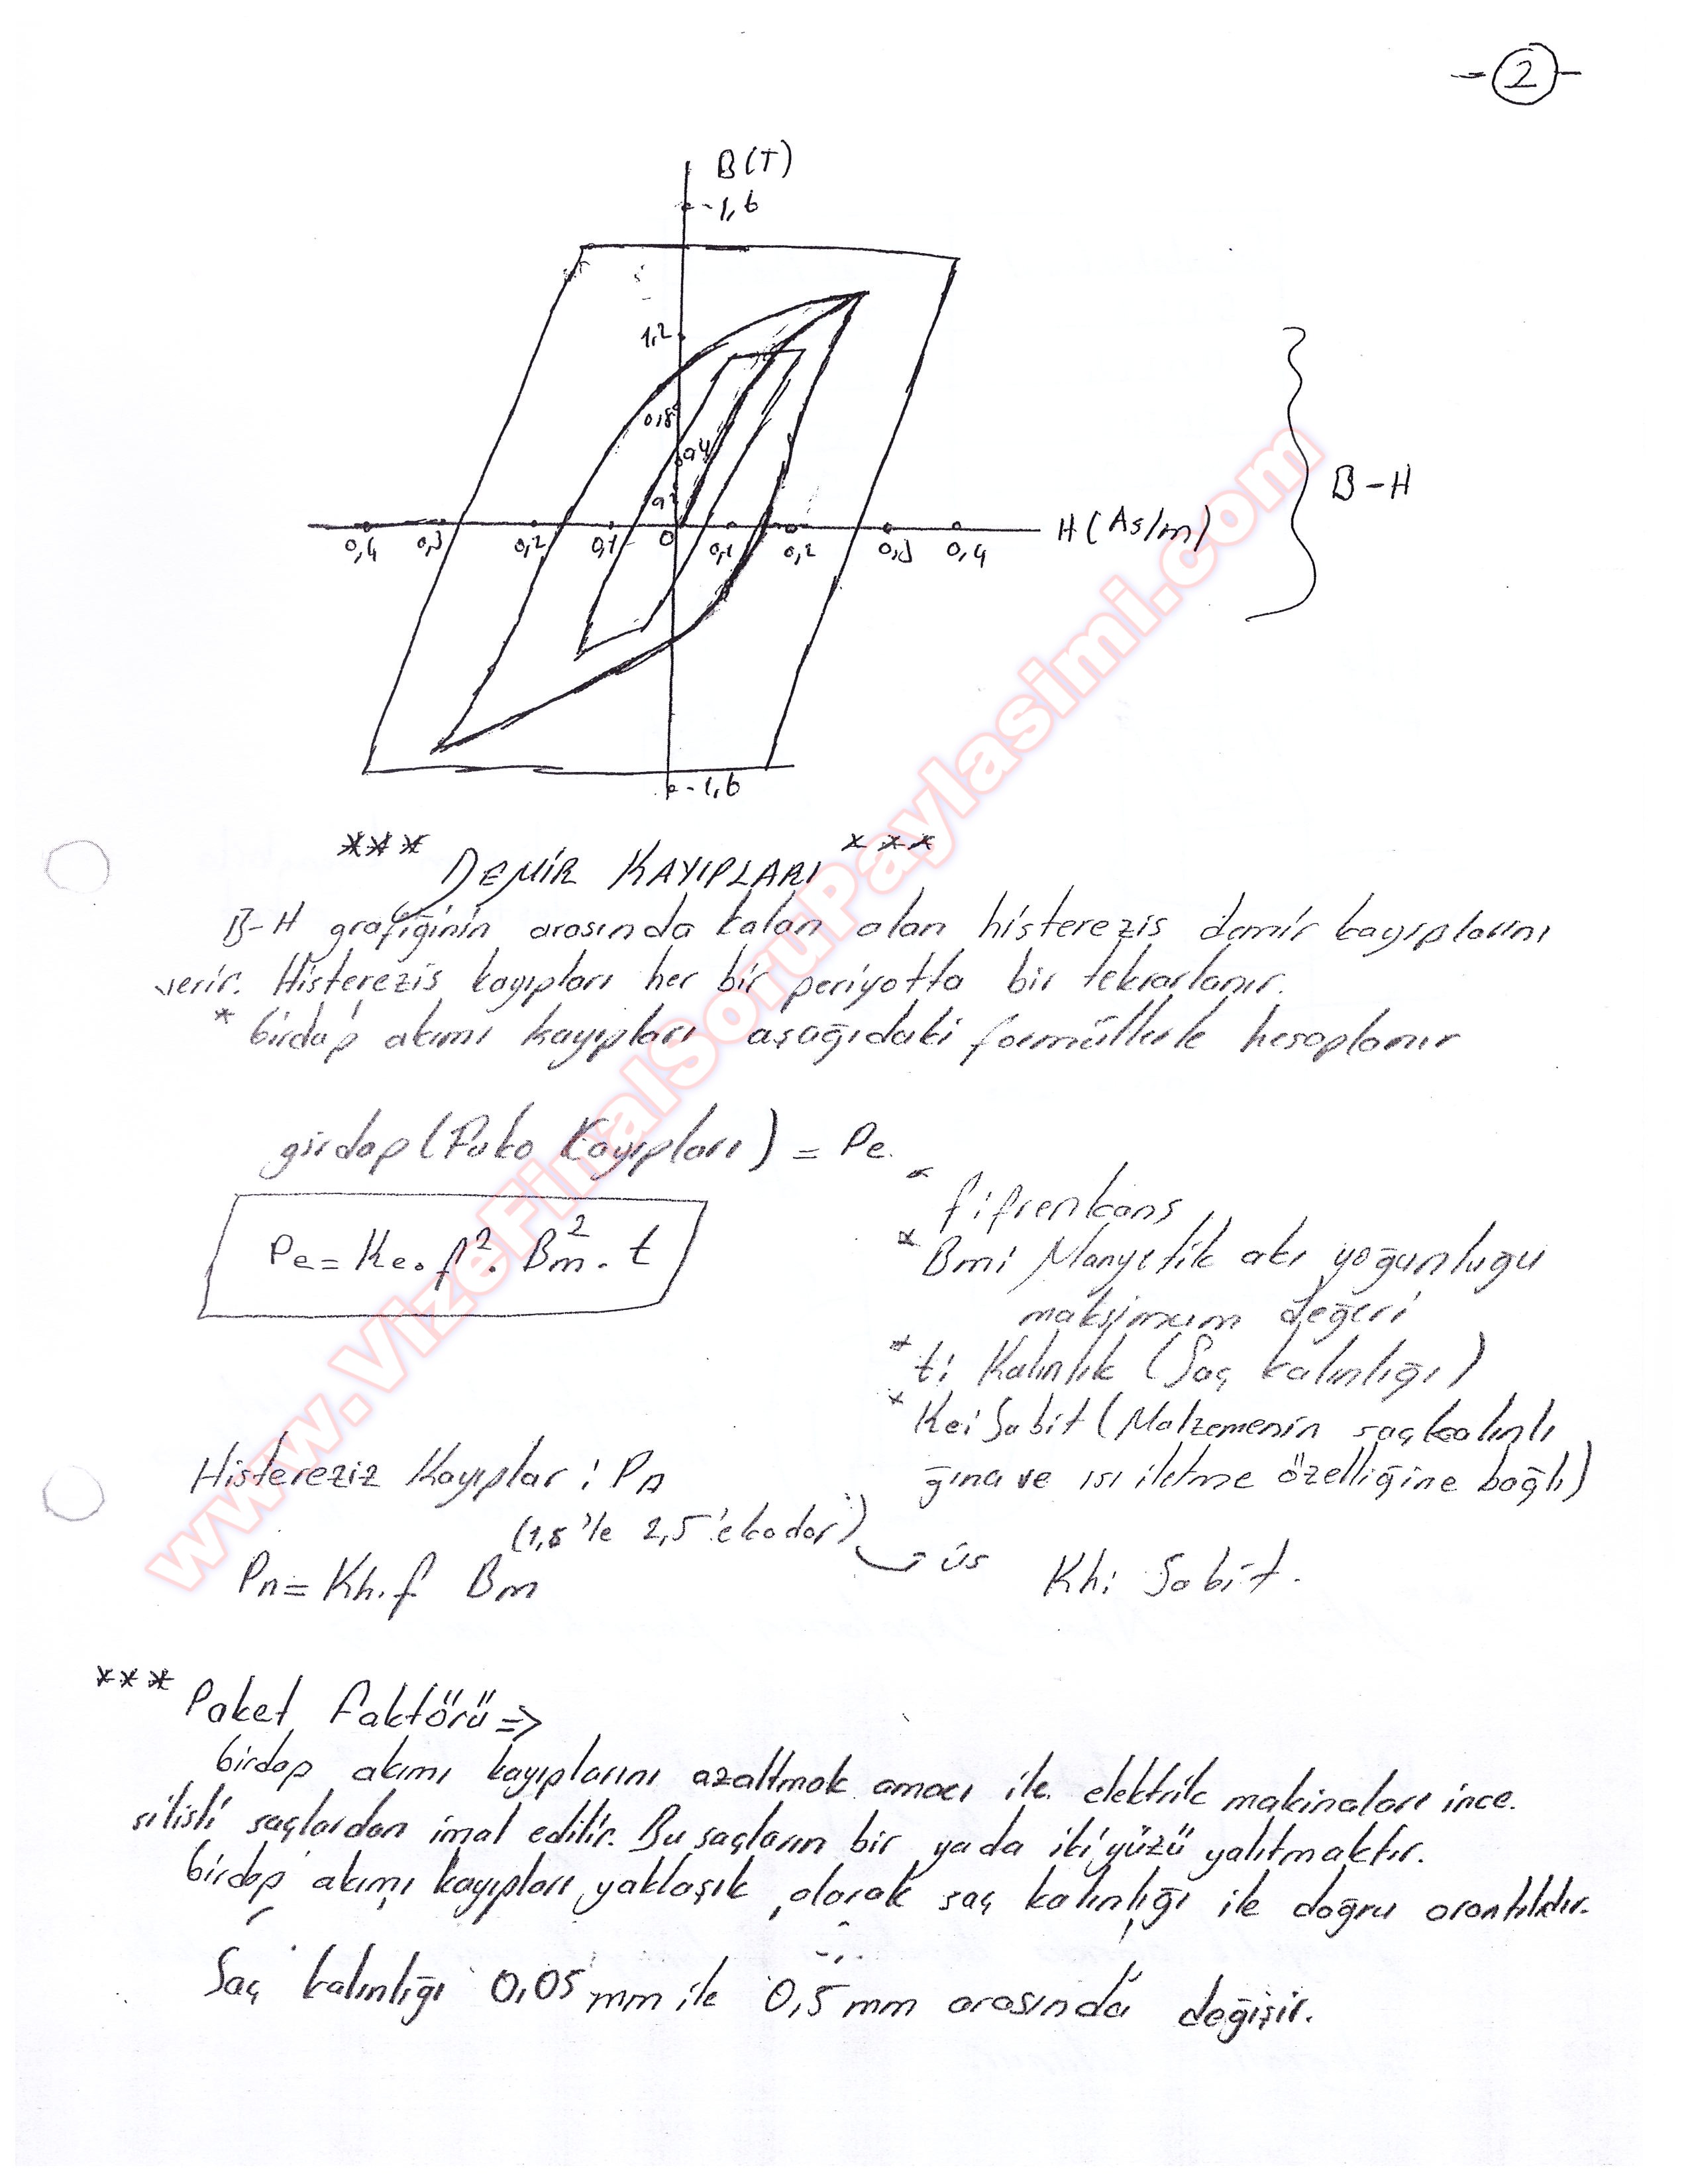 -2-
B(T)
-1,6
1,2
0,8
0,4
0,4 0,3 0,2 0,1 0 0,1 0,2 0,3 0,4 H(As/m)
B-H
-1,6
*** DEMİR KAYIPLARI ***
B-H grafiğinin arasında kalan alan histerezis demir kayıplarını
verir. Histerezis kayıpları her bir periyotta bir tekrarlanır.
* Girdap akımı kayıpları aşağıdaki formüllerle hesaplanır
girdap (Fuko Kayıpları) = Pe
Pe = Ke. f². Bm². t
* f: frenkans
* Bm: Manyetik akı yoğunlugu
maksimum değeri
* t: Kalınlık (Saç kalınlığı)
* Ke: Sabit (Malzemenin saçkalınlı
ğına ve ısı iletme özelliğine bağlı)
Histereziz Kayıplar : Ph
(1,5'le 2,5'ekadar) üs
Ph = Kh.f Bm
Kh: Sabit.
*** Paket Faktörü =>
Girdap akımı kayıplarını azaltmak amacı ile elektrik makinaları ince
silisli saçlardan imal edilir. Bu saçların bir yada iki yüzü yalıtmaktır.
Girdap akımı kayıpları yaklaşık olarak saç kalınlığı ile doğru orantılıdır.
Saç kalınlığı 0,05 mm ile 0,5 mm arasında değişir.
www.VizeFinalSoruPaylasimi.com